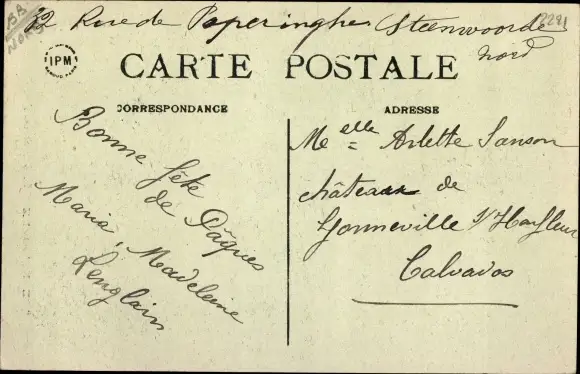 22 Rue de Poperinghe Steenwoorde
Nord
IPM
CARTE POSTALE
CORRESPONDANCE
ADRESSE
Bonne fête
de Pâques
Maria, Madeleine
Lenglain
Melle Arlette Sanson
château de
Gonneville s/Honfleur
Calvados